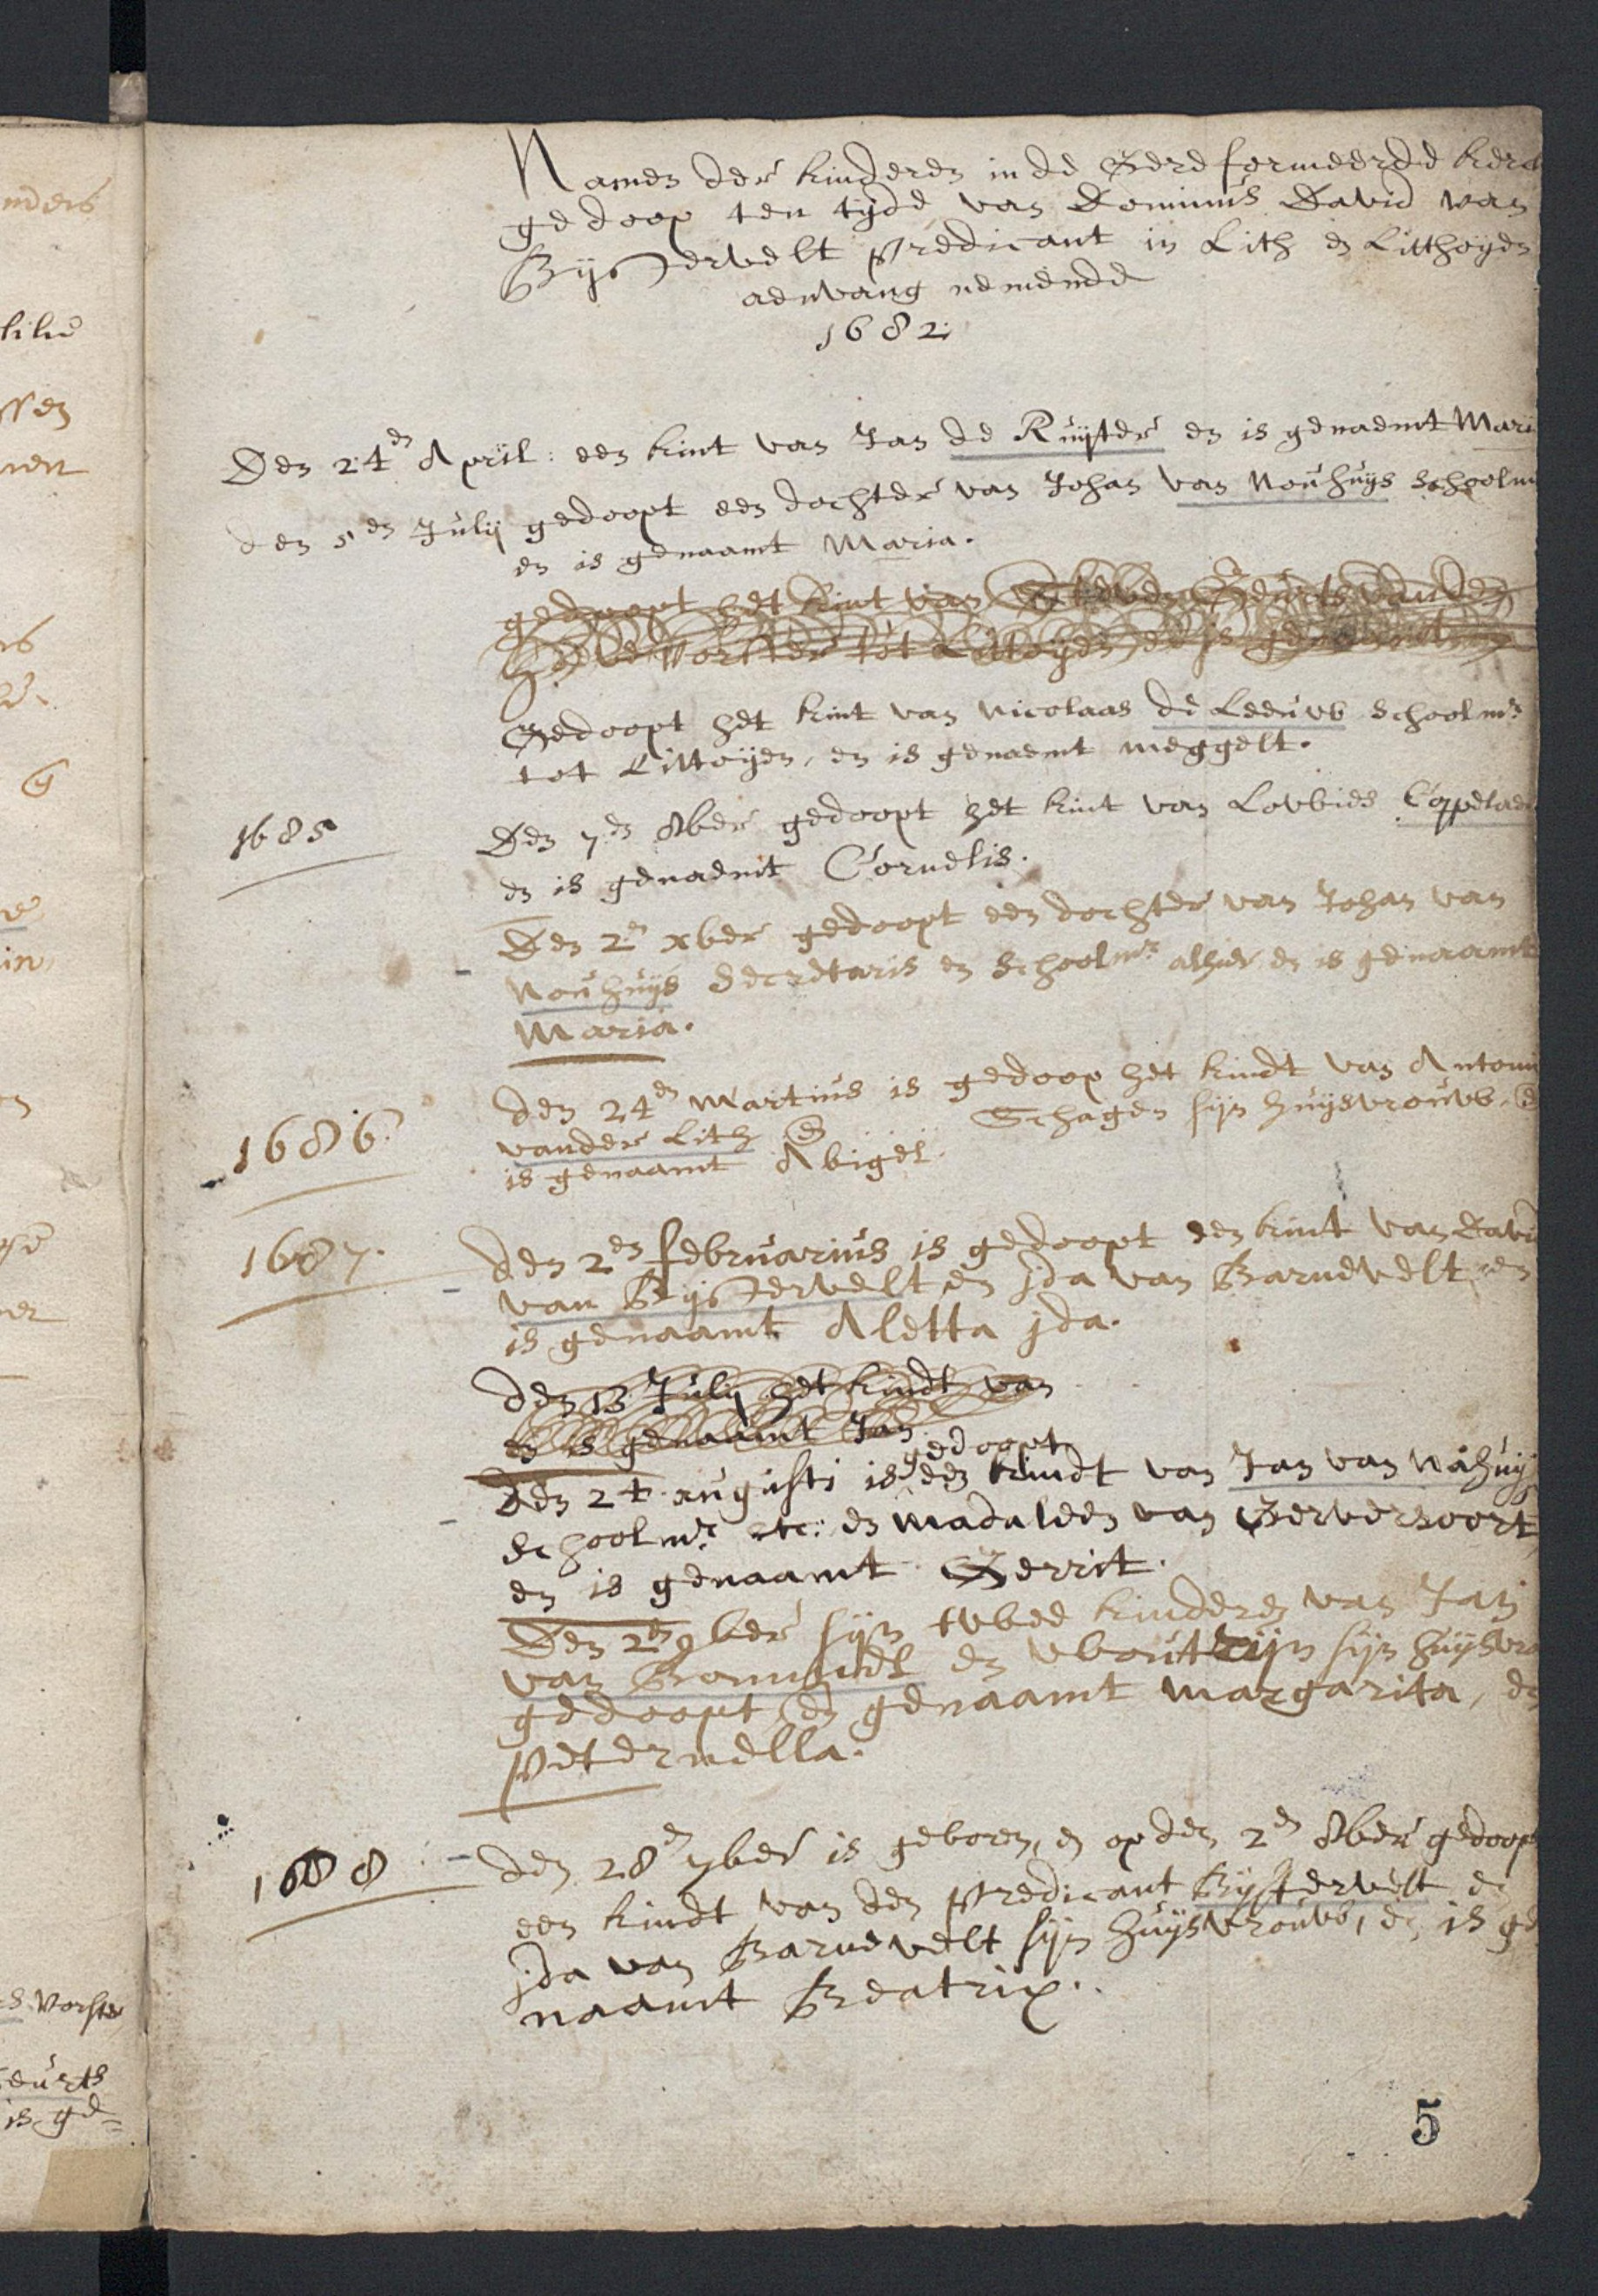 Namen der kinderen in de Gereformeerde kerck
gedoop ten tyde van Dominus David van
Bijstervelt predicant in Lith en Litthoijen
aenvang nemende
1682
Den 24en April: een kint van Jan de Ruijter en is genaemt Mari
den 5en Julij gedoopt een dochter van Johan van Nouhuijs schoolm
en is genaamt Maria.
gedoopt het kint van Geurts vander
vorster tot Littoijen, en is genaemt
Gedoopt het kint van Nicolaas de Leeuw schoolmr
tot Littoijen, en is genaemt Meggelt.
1685
Den 7en 8ber gedoopt het kint van Lowies Cappelae
en is genaemt Cornelis.
Den 2en xber gedoopt een dochter van Johan van
Nouhuijs Secretaris en Schoolmr alhier en is genaamt
Maria.
1686
den 24en Martius is gedoop het kindt van Antoni
vander Lith en Schagen sijn huijsvrouw, en
is genaamt Abigel.
1687.
den 2en februarius is gedoopt een kint van David
van Bijstervelt en jda van Barnevelt en
is genaamt Aletta jda.
den 13 Julij het kindt van
en is genaamt Jan
gedoopt
Den 24 augusti is een kindt van Jan van Nahuij
Schoolmr etc: en Madaleen van Gerversoort
en is genaamt Gerrit.
Den 2en 9ber sijn twee kinderen van Jan
van Bommel en Woutrijn sijn huijsvro
gedoopt, en genaamt Margarita, en
Peternella.
1688
den 28en 7ber is geboren, en op den 2en 8ber gedoop
een kindt van den predicant Bijstervelt en
jda van Barnevelt sijn huijsvrouw, en is ge
naamt Beatrix.
nders
ssen
nen
in
ner
s vorster
Geurts
is ge=
5